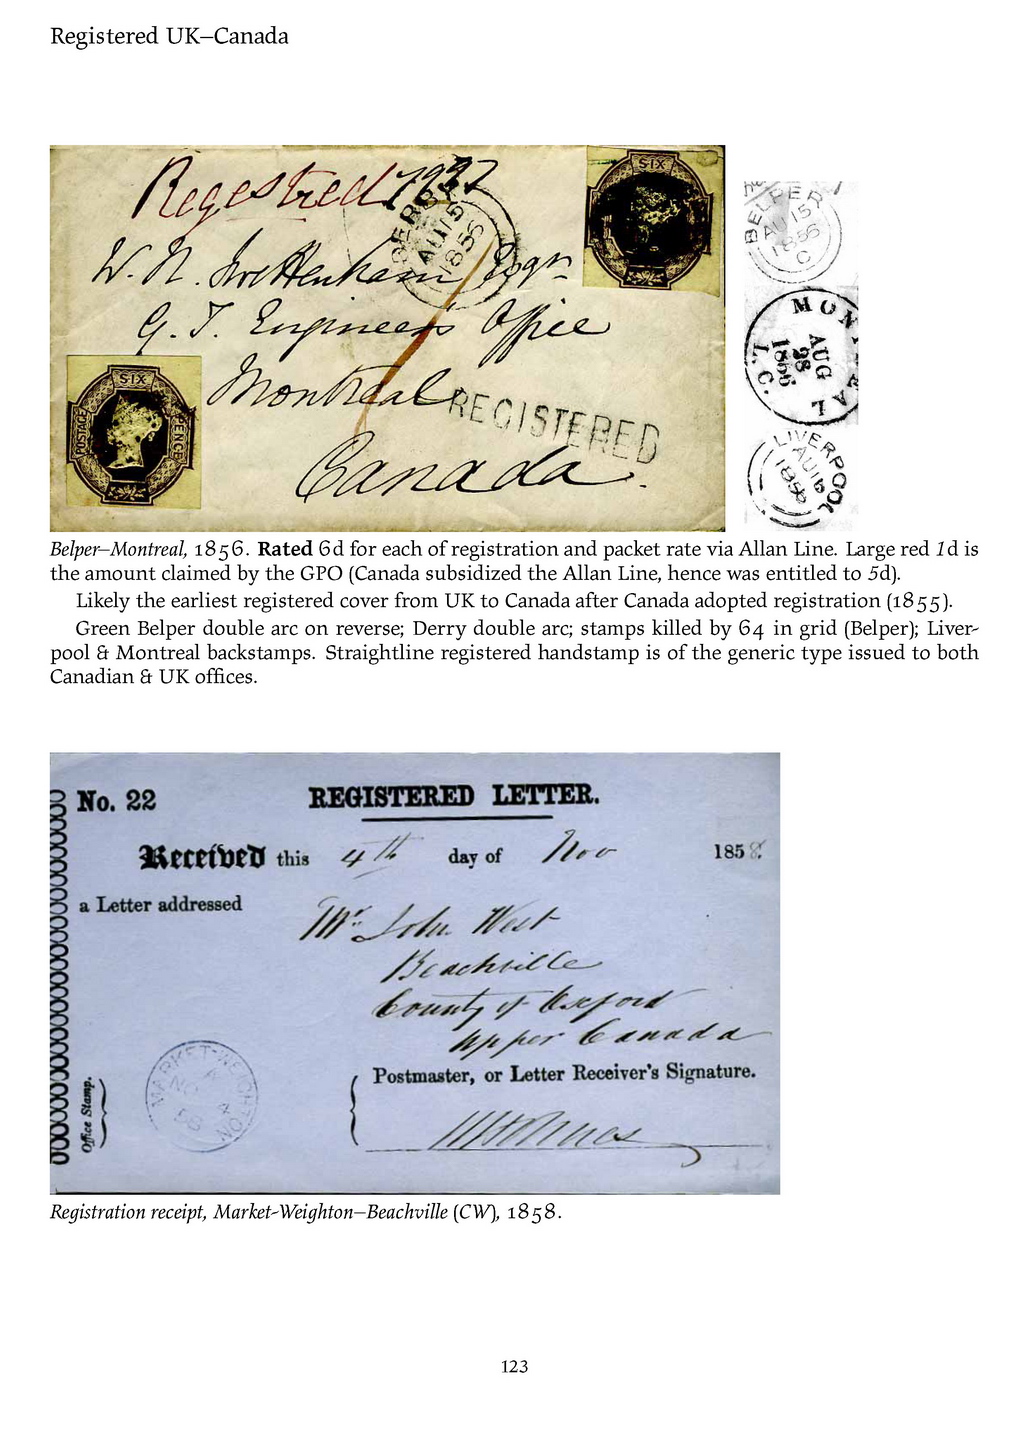 Registered UK–Canada
Regestred
SIX
BELPER
AU 15
1856
W. N.
Esqr
G. T. Engineer's Office
Montreal
REGISTERED
Canada.
SIX
POSTAGE
PENCE
BELPER
AU 15
1856
C
MONTREAL
AUG
28
1856
C. T.
LIVERPOOL
AU 16
1856
Belper–Montreal, 1856. Rated 6d for each of registration and packet rate via Allan Line. Large red 1d is
the amount claimed by the GPO (Canada subsidized the Allan Line, hence was entitled to 5d).
Likely the earliest registered cover from UK to Canada after Canada adopted registration (1855).
Green Belper double arc on reverse; Derry double arc; stamps killed by 64 in grid (Belper); Liver-
pool & Montreal backstamps. Straightline registered handstamp is of the generic type issued to both
Canadian & UK offices.
No. 22 REGISTERED LETTER.
Received this 4th day of Nov 1858.
a Letter addressed
Mr. John West
Beachville
County of Oxford
Upper Canada
MARKET-WEIGHTON
A
NO 4
58
Office Stamp.
Postmaster, or Letter Receiver's Signature.
Registration receipt, Market-Weighton–Beachville (CW), 1858.
123